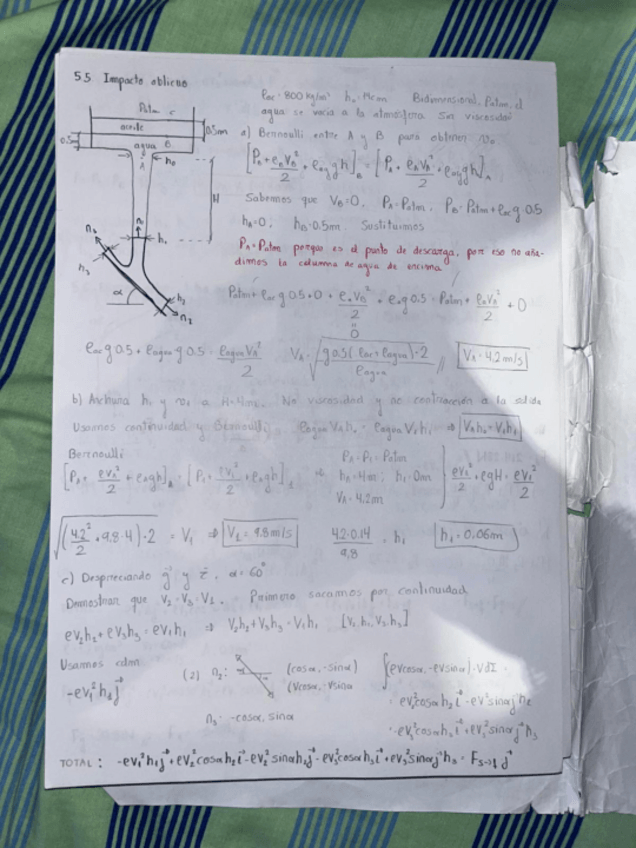 5.5 Impacto oblicuo
ρac = 800 kg/m³ h₀ = 14cm Bidimensional, Patm, el
agua se vacia a la atmosfera Sin viscosidad
Patm C
aceite
0.5m
agua B
0.5m
A
h₀
H
n₁
h₁
n₃
h₃
α
h₂
n₂
a) Bernoulli entre A y B para obtener v₀
Sabemos que VB=0, PA=Patm, PB=Patm+ρac g 0.5
hA=0, hB=0.5m. Sustituimos
PA=Patm porque es el punto de descarga, por eso no aña-
dimos la columna de agua de encima
Patm + ρac g 0.5 + 0 +
= Patm +
+ 0
ρac g 0.5 + ρagua g 0.5 = ρagua VA²/2
VA = √(g 0.5 (ρac + ρagua)·2 / ρagua)
VA = 4.2 m/s
b) Anchura h₁ y v₁ a H=4m. No viscosidad y no contracción a la salida
Usamos continuidad y Bernoulli ρagua VA h₀ = ρagua V₁ h₁ ⇒ VA h₀ = V₁ h₁
Bernoulli
PA = P₁ = Patm
hA = 4m; h₁ = 0m
VA = 4.2m
ρVA²/2 + ρgH = ρV₁²/2
√((4.2²/2 + 9.8·4)·2) = V₁ ⇒ V₁ = 9.8 m/s
4.2·0.14 / 9.8 = h₁
h₁ = 0.06m
c) Despreciando g⃗ y τ⃗, α=60°
Demostrar que V₂ = V₃ = V₁. Primero sacamos por continuidad
ρV₂h₂ + ρV₃h₃ = ρV₁h₁ ⇒ V₂h₂ + V₃h₃ = V₁h₁ [V₂, h₂, V₃, h₃]
Usamos cdm
-ρV₁²h₁j⃗
(2) n₂:
(cosα, -sinα)
(Vcosα, -Vsinα
∫(ρVcosα, -ρVsinα)·VdΣ =
= ρV₂²cosα h₂ i⃗ - ρV²sinα j⃗ h₂
n₃ = -cosα, sinα
= -ρV₃²cosα h₃ i⃗ + ρV₃²sinα j⃗ h₃
TOTAL: -ρV₁²h₁j⃗ + ρV₂²cosα h₂ i⃗ - ρV₂²sinα h₂ j⃗ - ρV₃²cosα h₃ i⃗ + ρV₃²sinα j⃗ h₃ =